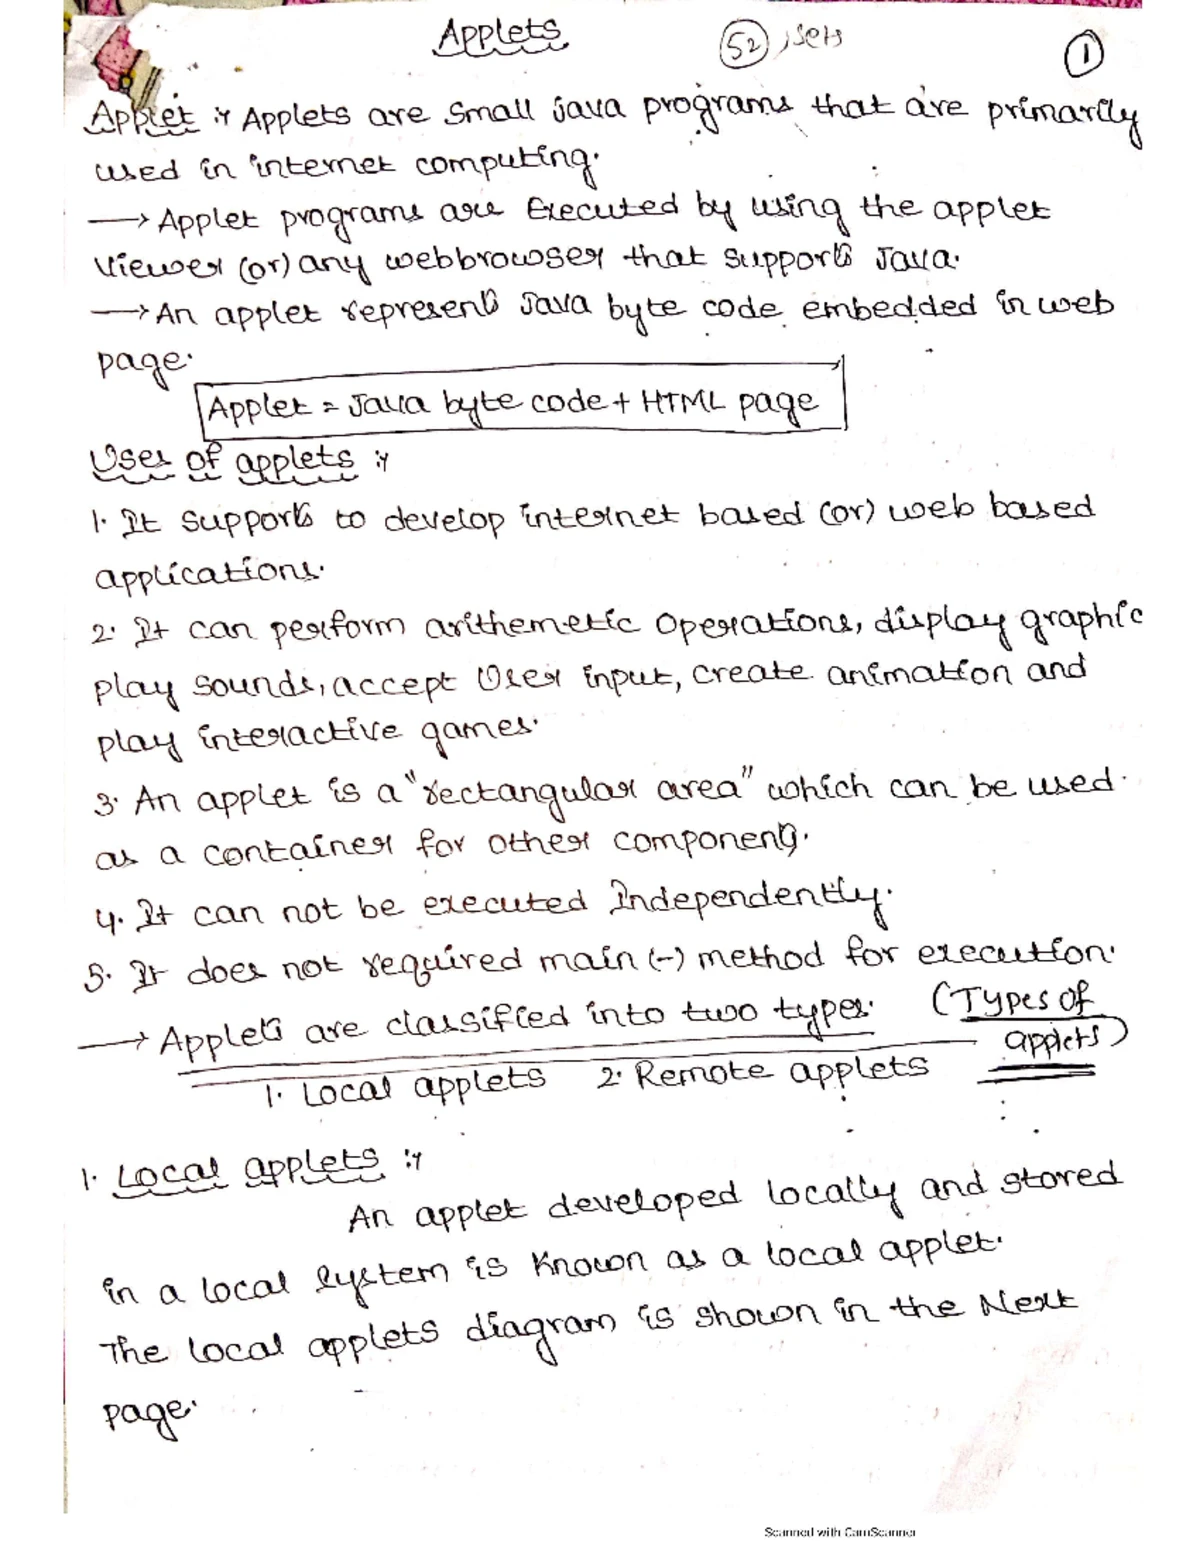 Applets
52, sets
1
Applet :- Applets are small java programs that are primarily
used in internet computing.
→ Applet programs are Executed by using the applet
viewer (or) any webbrowser that supports Java.
→ An applet represents Java byte code embedded in web
page.
Applet = Java byte code + HTML page
Uses of applets :-
1. It supports to develop internet based (or) web based
applications.
2. It can perform arithemetic operations, display graphic
play sounds, accept User input, create animation and
play interactive games.
3. An applet is a "rectangular area" which can be used
as a container for other components.
4. It can not be executed Independently.
5. It does not required main (-) method for execution.
→ Applets are classified into two types. (Types of
applets)
1. Local applets 2. Remote applets
1. Local applets :-
An applet developed locally and stored
in a local system is known as a local applet.
The local applets diagram is shown in the Next
page.
Scanned with CamScanner